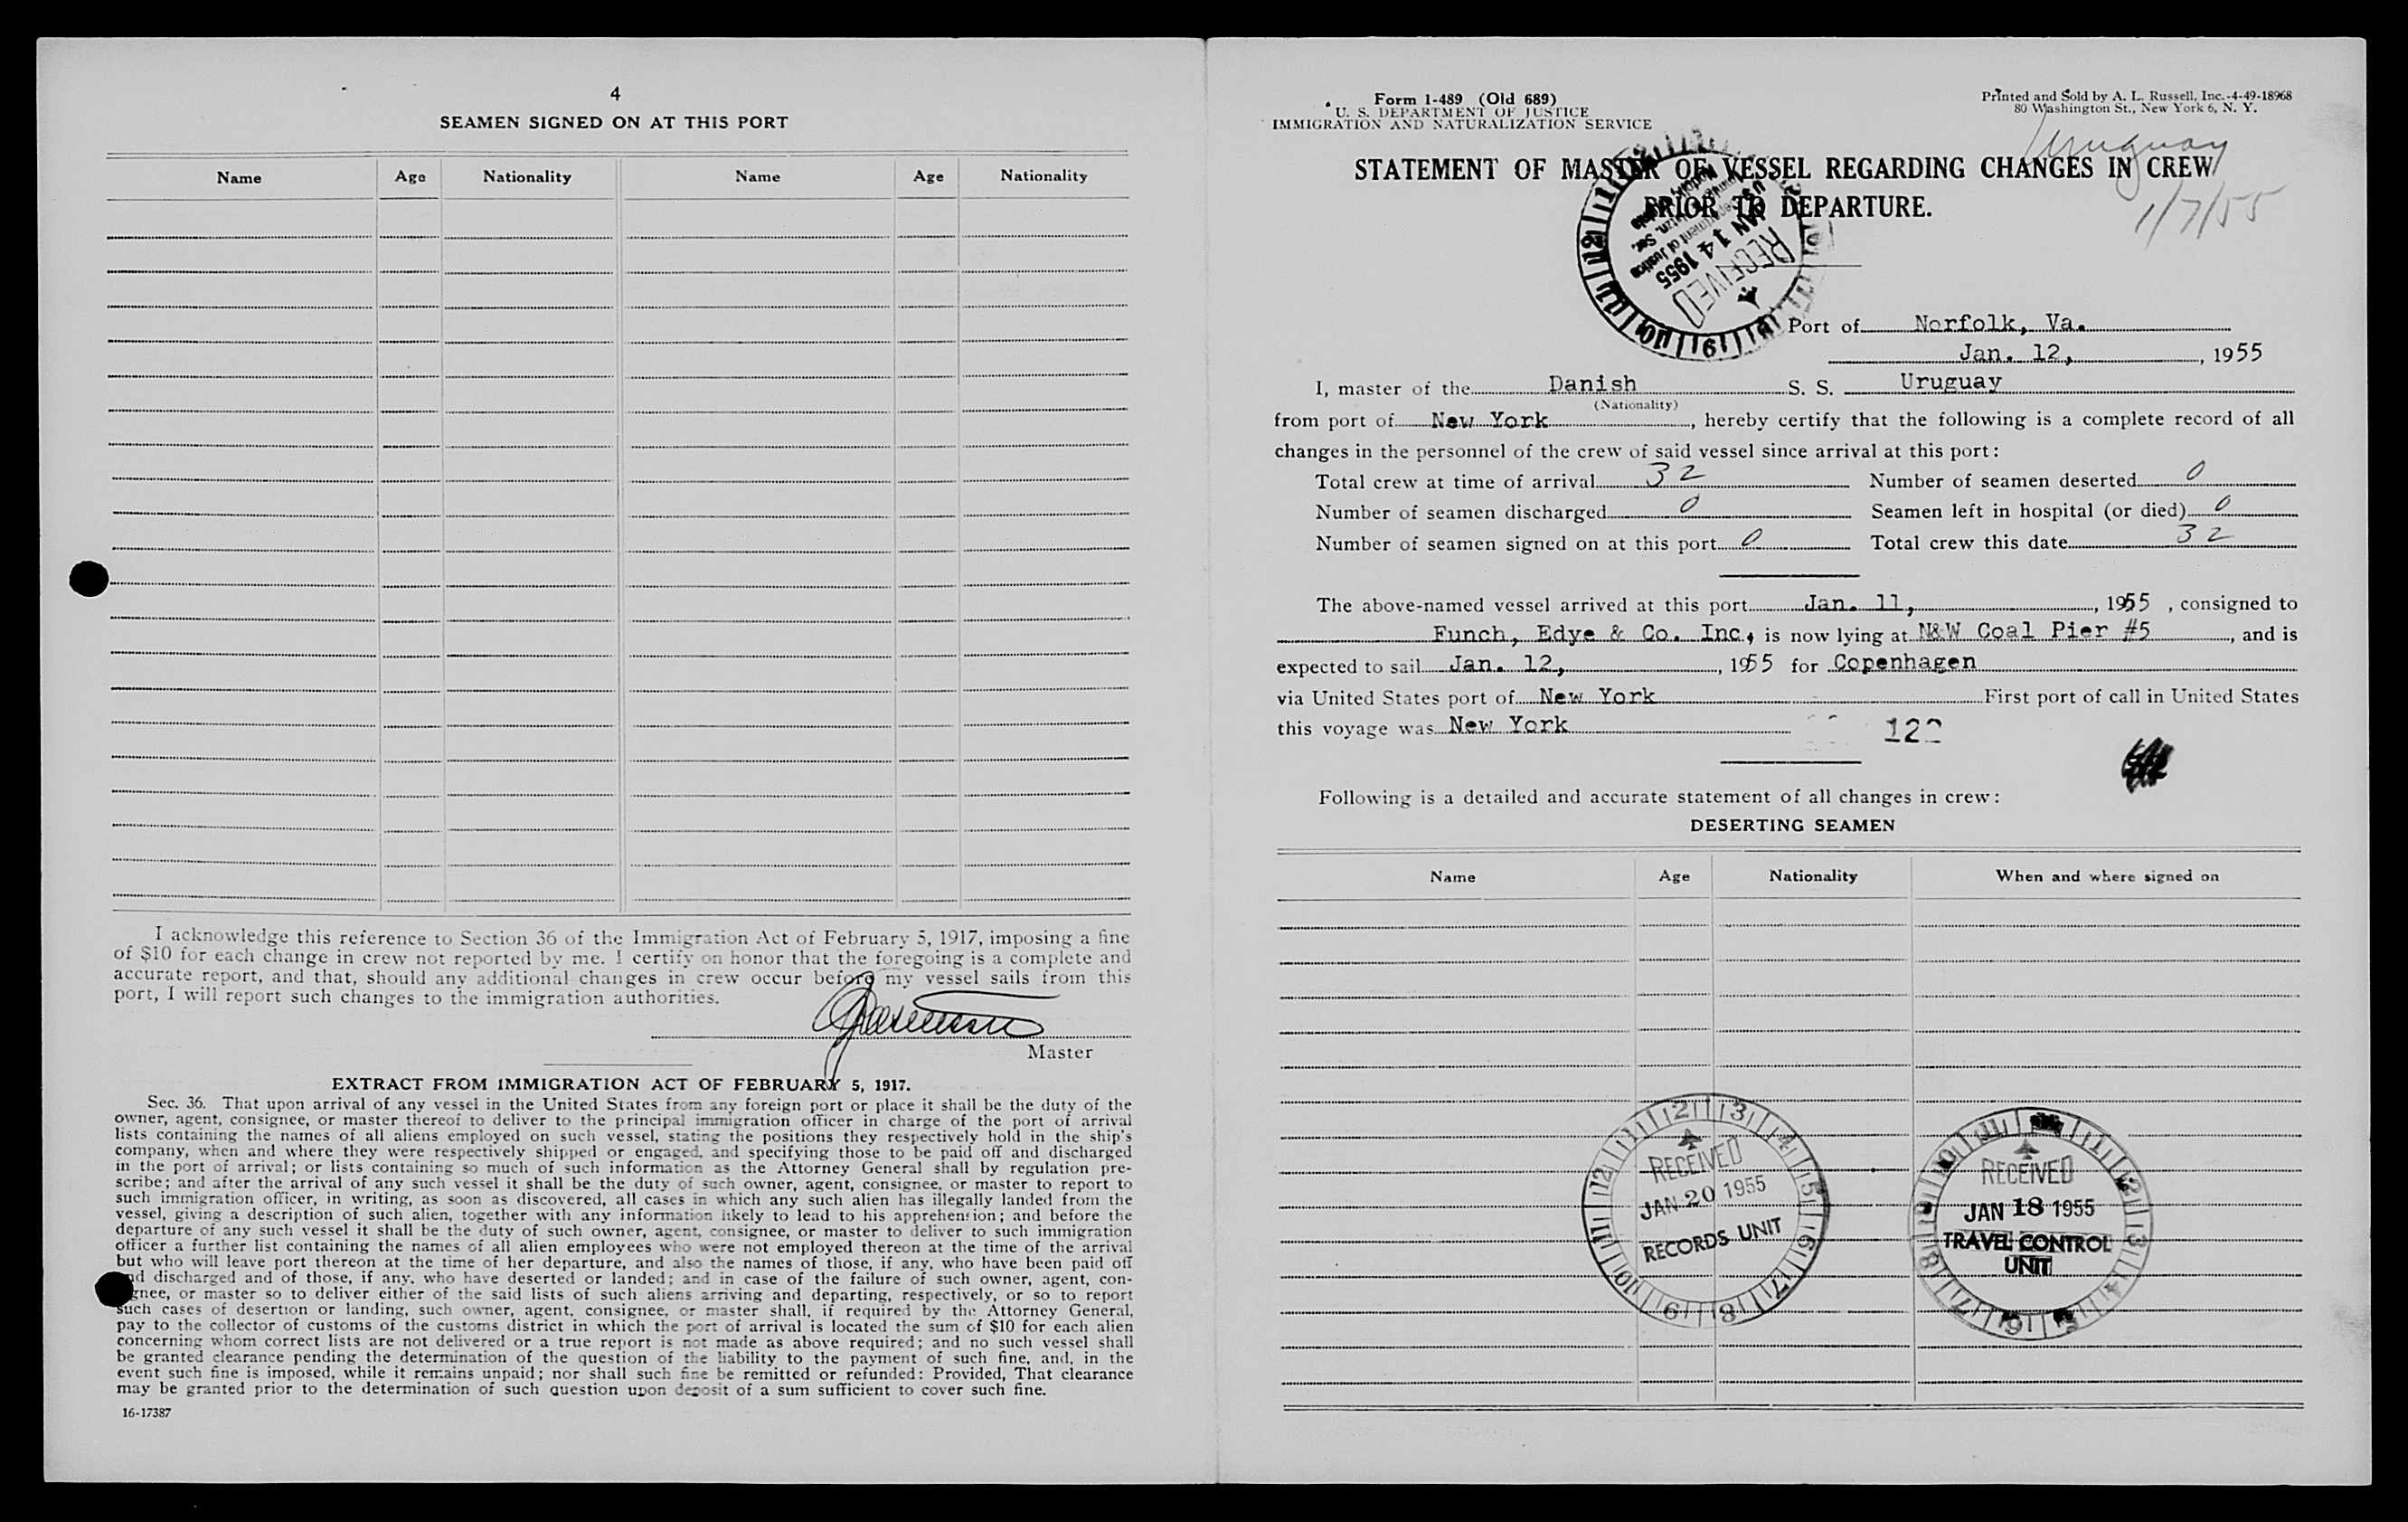 4
SEAMEN SIGNED ON AT THIS PORT
Name Age Nationality Name Age Nationality
I acknowledge this reference to Section 36 of the Immigration Act of February 5, 1917, imposing a fine
of $10 for each change in crew not reported by me. I certify on honor that the foregoing is a complete and
accurate report, and that, should any additional changes in crew occur before my vessel sails from this
port, I will report such changes to the immigration authorities.
Master
EXTRACT FROM IMMIGRATION ACT OF FEBRUARY 5, 1917.
Sec. 36. That upon arrival of any vessel in the United States from any foreign port or place it shall be the duty of the
owner, agent, consignee, or master thereof to deliver to the principal immigration officer in charge of the port of arrival
lists containing the names of all aliens employed on such vessel, stating the positions they respectively hold in the ship's
company, when and where they were respectively shipped or engaged, and specifying those to be paid off and discharged
in the port of arrival; or lists containing so much of such information as the Attorney General shall by regulation pre-
scribe; and after the arrival of any such vessel it shall be the duty of such owner, agent, consignee, or master to report to
such immigration officer, in writing, as soon as discovered, all cases in which any such alien has illegally landed from the
vessel, giving a description of such alien, together with any information likely to lead to his apprehension; and before the
departure of any such vessel it shall be the duty of such owner, agent, consignee, or master to deliver to such immigration
officer a further list containing the names of all alien employees who were not employed thereon at the time of the arrival
but who will leave port thereon at the time of her departure, and also the names of those, if any, who have been paid off
and discharged and of those, if any, who have deserted or landed; and in case of the failure of such owner, agent, con-
signee, or master so to deliver either of the said lists of such aliens arriving and departing, respectively, or so to report
such cases of desertion or landing, such owner, agent, consignee, or master shall, if required by the Attorney General,
pay to the collector of customs of the customs district in which the port of arrival is located the sum of $10 for each alien
concerning whom correct lists are not delivered or a true report is not made as above required; and no such vessel shall
be granted clearance pending the determination of the question of the liability to the payment of such fine, and, in the
event such fine is imposed, while it remains unpaid; nor shall such fine be remitted or refunded: Provided, That clearance
may be granted prior to the determination of such question upon deposit of a sum sufficient to cover such fine.
16-17387
Form 1-489 (Old 689)
U. S. DEPARTMENT OF JUSTICE
IMMIGRATION AND NATURALIZATION SERVICE
Printed and Sold by A. L. Russell, Inc.-4-49-18968
80 Washington St., New York 6, N. Y.
Uruguay
1/7/55
STATEMENT OF MASTER OF VESSEL REGARDING CHANGES IN CREW
PRIOR TO DEPARTURE.
RECEIVED
JAN 14 1955
Port of Norfolk, Va.
Jan. 12, , 1955
I, master of the Danish S. S. Uruguay
(Nationality)
from port of New York , hereby certify that the following is a complete record of all
changes in the personnel of the crew of said vessel since arrival at this port:
Total crew at time of arrival 32 Number of seamen deserted 0
Number of seamen discharged 0 Seamen left in hospital (or died) 0
Number of seamen signed on at this port 0 Total crew this date 32
The above-named vessel arrived at this port Jan. 11, , 1955 , consigned to
Funch, Edye & Co. Inc., is now lying at N&W Coal Pier #5 , and is
expected to sail Jan. 12, , 1955 for Copenhagen
via United States port of New York First port of call in United States
this voyage was New York
Following is a detailed and accurate statement of all changes in crew:
DESERTING SEAMEN
Name Age Nationality When and where signed on
RECEIVED
JAN 20 1955
RECORDS UNIT
RECEIVED
JAN 18 1955
TRAVEL CONTROL
UNIT